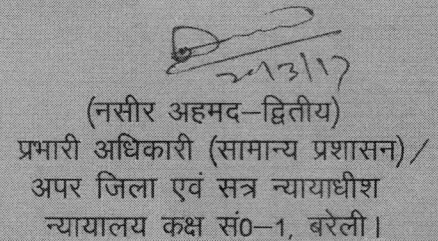 (नसीर अहमद–द्वितीय)
प्रभारी अधिकारी (सामान्य प्रशासन)/
अपर जिला एवं सत्र न्यायाधीश
न्यायालय कक्ष सं0–1, बरेली।